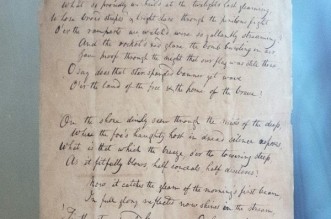 What so proudly we hail'd at the twilight's last gleaming
Whose broad stripes & bright stars through the perilous fight
O'er the ramparts we watch'd were so gallantly streaming?
And the rocket's red glare, the bomb bursting in air
Gave proof through the night that our flag was still there
O say does that star-spangled banner yet wave
O'er the land of the free & the home of the brave?
On the shore dimly seen through the mists of the deep,
Where the foe's haughty host in dread silence reposes,
What is that which the breeze, o'er the towering steep
As it fitfully blows, half conceals, half discloses?
Now it catches the gleam of the morning's first beam
In full glory reflected now shines in the stream